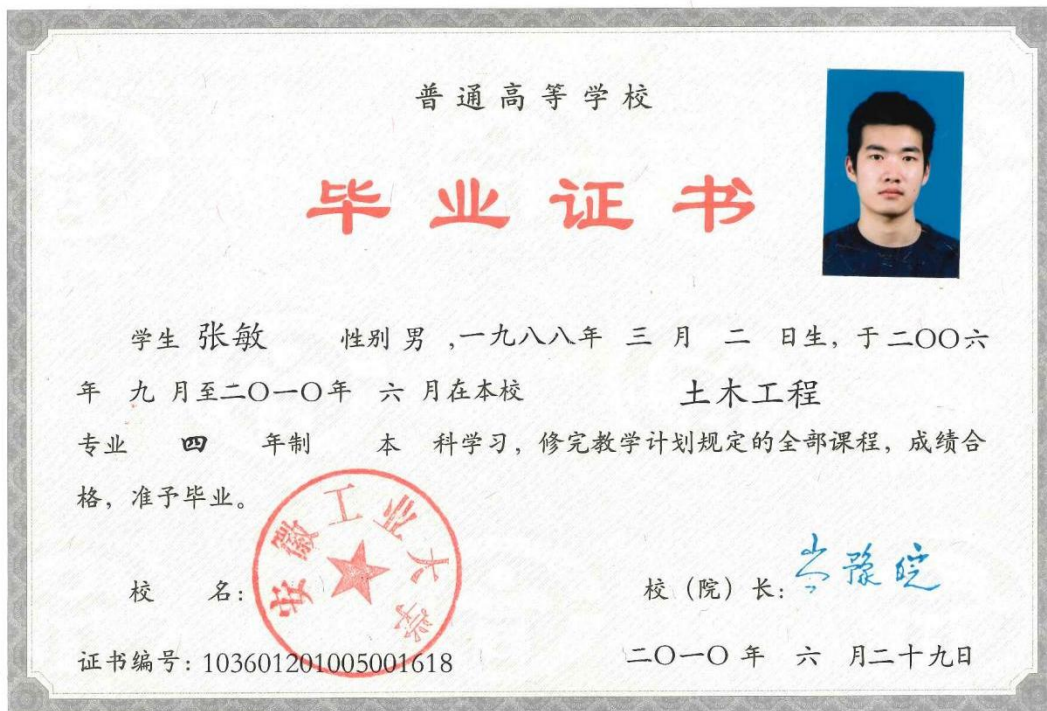 普通高等学校
毕业证书
学生 张敏 性别 男 ,一九八八年 三 月 二 日生，于二〇〇六
年 九 月至二〇一〇年 六 月在本校 土木工程
专业 四 年制 本 科学习，修完教学计划规定的全部课程，成绩合
格，准予毕业。
安徽工业大学
校 名： 校（院）长：岑豫皖
证书编号：103601201005001618 二〇一〇 年 六 月二十九日